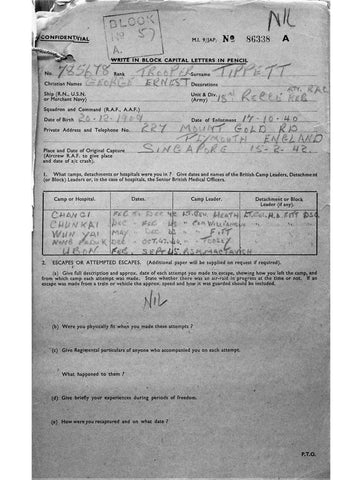 NIL
BLOCK
Nº 57
A.
CONFIDENTIAL
M.I. 9/JAP. Nº 86338 A
WRITE IN BLOCK CAPITAL LETTERS IN PENCIL.
No. Rank TROOPER Surname TIPPETT
Christian Names GEORGE ERNEST Decorations
Ship (R.N., U.S.N. or Merchant Navy) Unit & Div. (Army) 18th RECCE
Squadron and Command (R.A.F., A.A.F.)
Date of Birth 20-12-1909 Date of Enlistment 17-10-40
Private Address and Telephone No. 227 MOUNT GOLD RD
PLYMOUTH ENGLAND
Place and Date of Original Capture SINGAPORE 15-2-42.
(Aircrew R.A.F. to give place
and date of a/c crash).
1. What camps, detachments or hospitals were you in? Give dates and names of the British Camp Leaders, Detachment
(or Block) Leaders or, in the case of hospitals, the Senior British Medical Officers.
Camp or Hospital. Dates. Camp Leader. Detachment or Block
Leader (if any).
CHANGI FEB DEC 42 HEATH
CHUNKAI DEC
WUN YAI MAY DEC
DEC TOOEY
UBON FEB SEPT 45
2. ESCAPES OR ATTEMPTED ESCAPES. (Additional paper will be supplied on request if required).
(a) Give full description and approx. date of each attempt you made to escape, showing how you left the camp, and
from which camp each attempt was made. State whether there was an air-raid in progress at the time or not. If an
escape was made from a train or vehicle the approx. speed and how it was guarded should be included.
NIL
(b) Were you physically fit when you made these attempts?
(c) Give Regimental particulars of anyone who accompanied you on each attempt.
What happened to them?
(d) Give briefly your experiences during periods of freedom.
(e) How were you recaptured and on what date?
P.T.O.